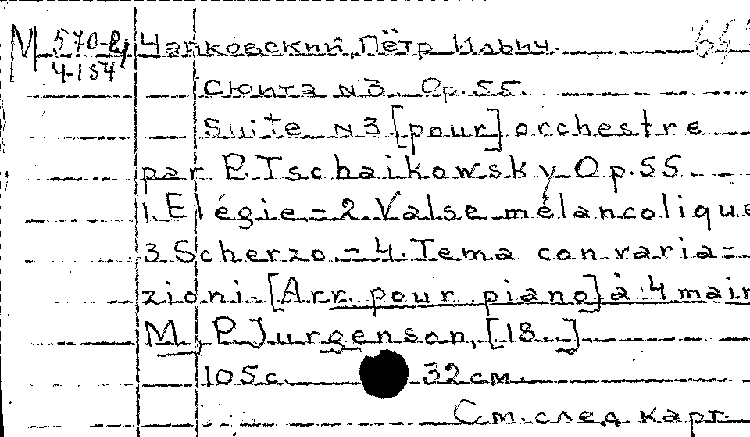 М 570-81 Чайковский, Пётр Ильич.
4-154
Сюита N3. Ор.55.
Suite N3 [pour] orchestre
par P. Tschaikowsky Op.55
1. Elégie – 2. Valse mélancolique
3 Scherzo – 4. Tema con varia=
zioni. [Arr. pour piano] à 4 main
М., P. Jurgenson, [18..]
105с. 32см.
См. след карт